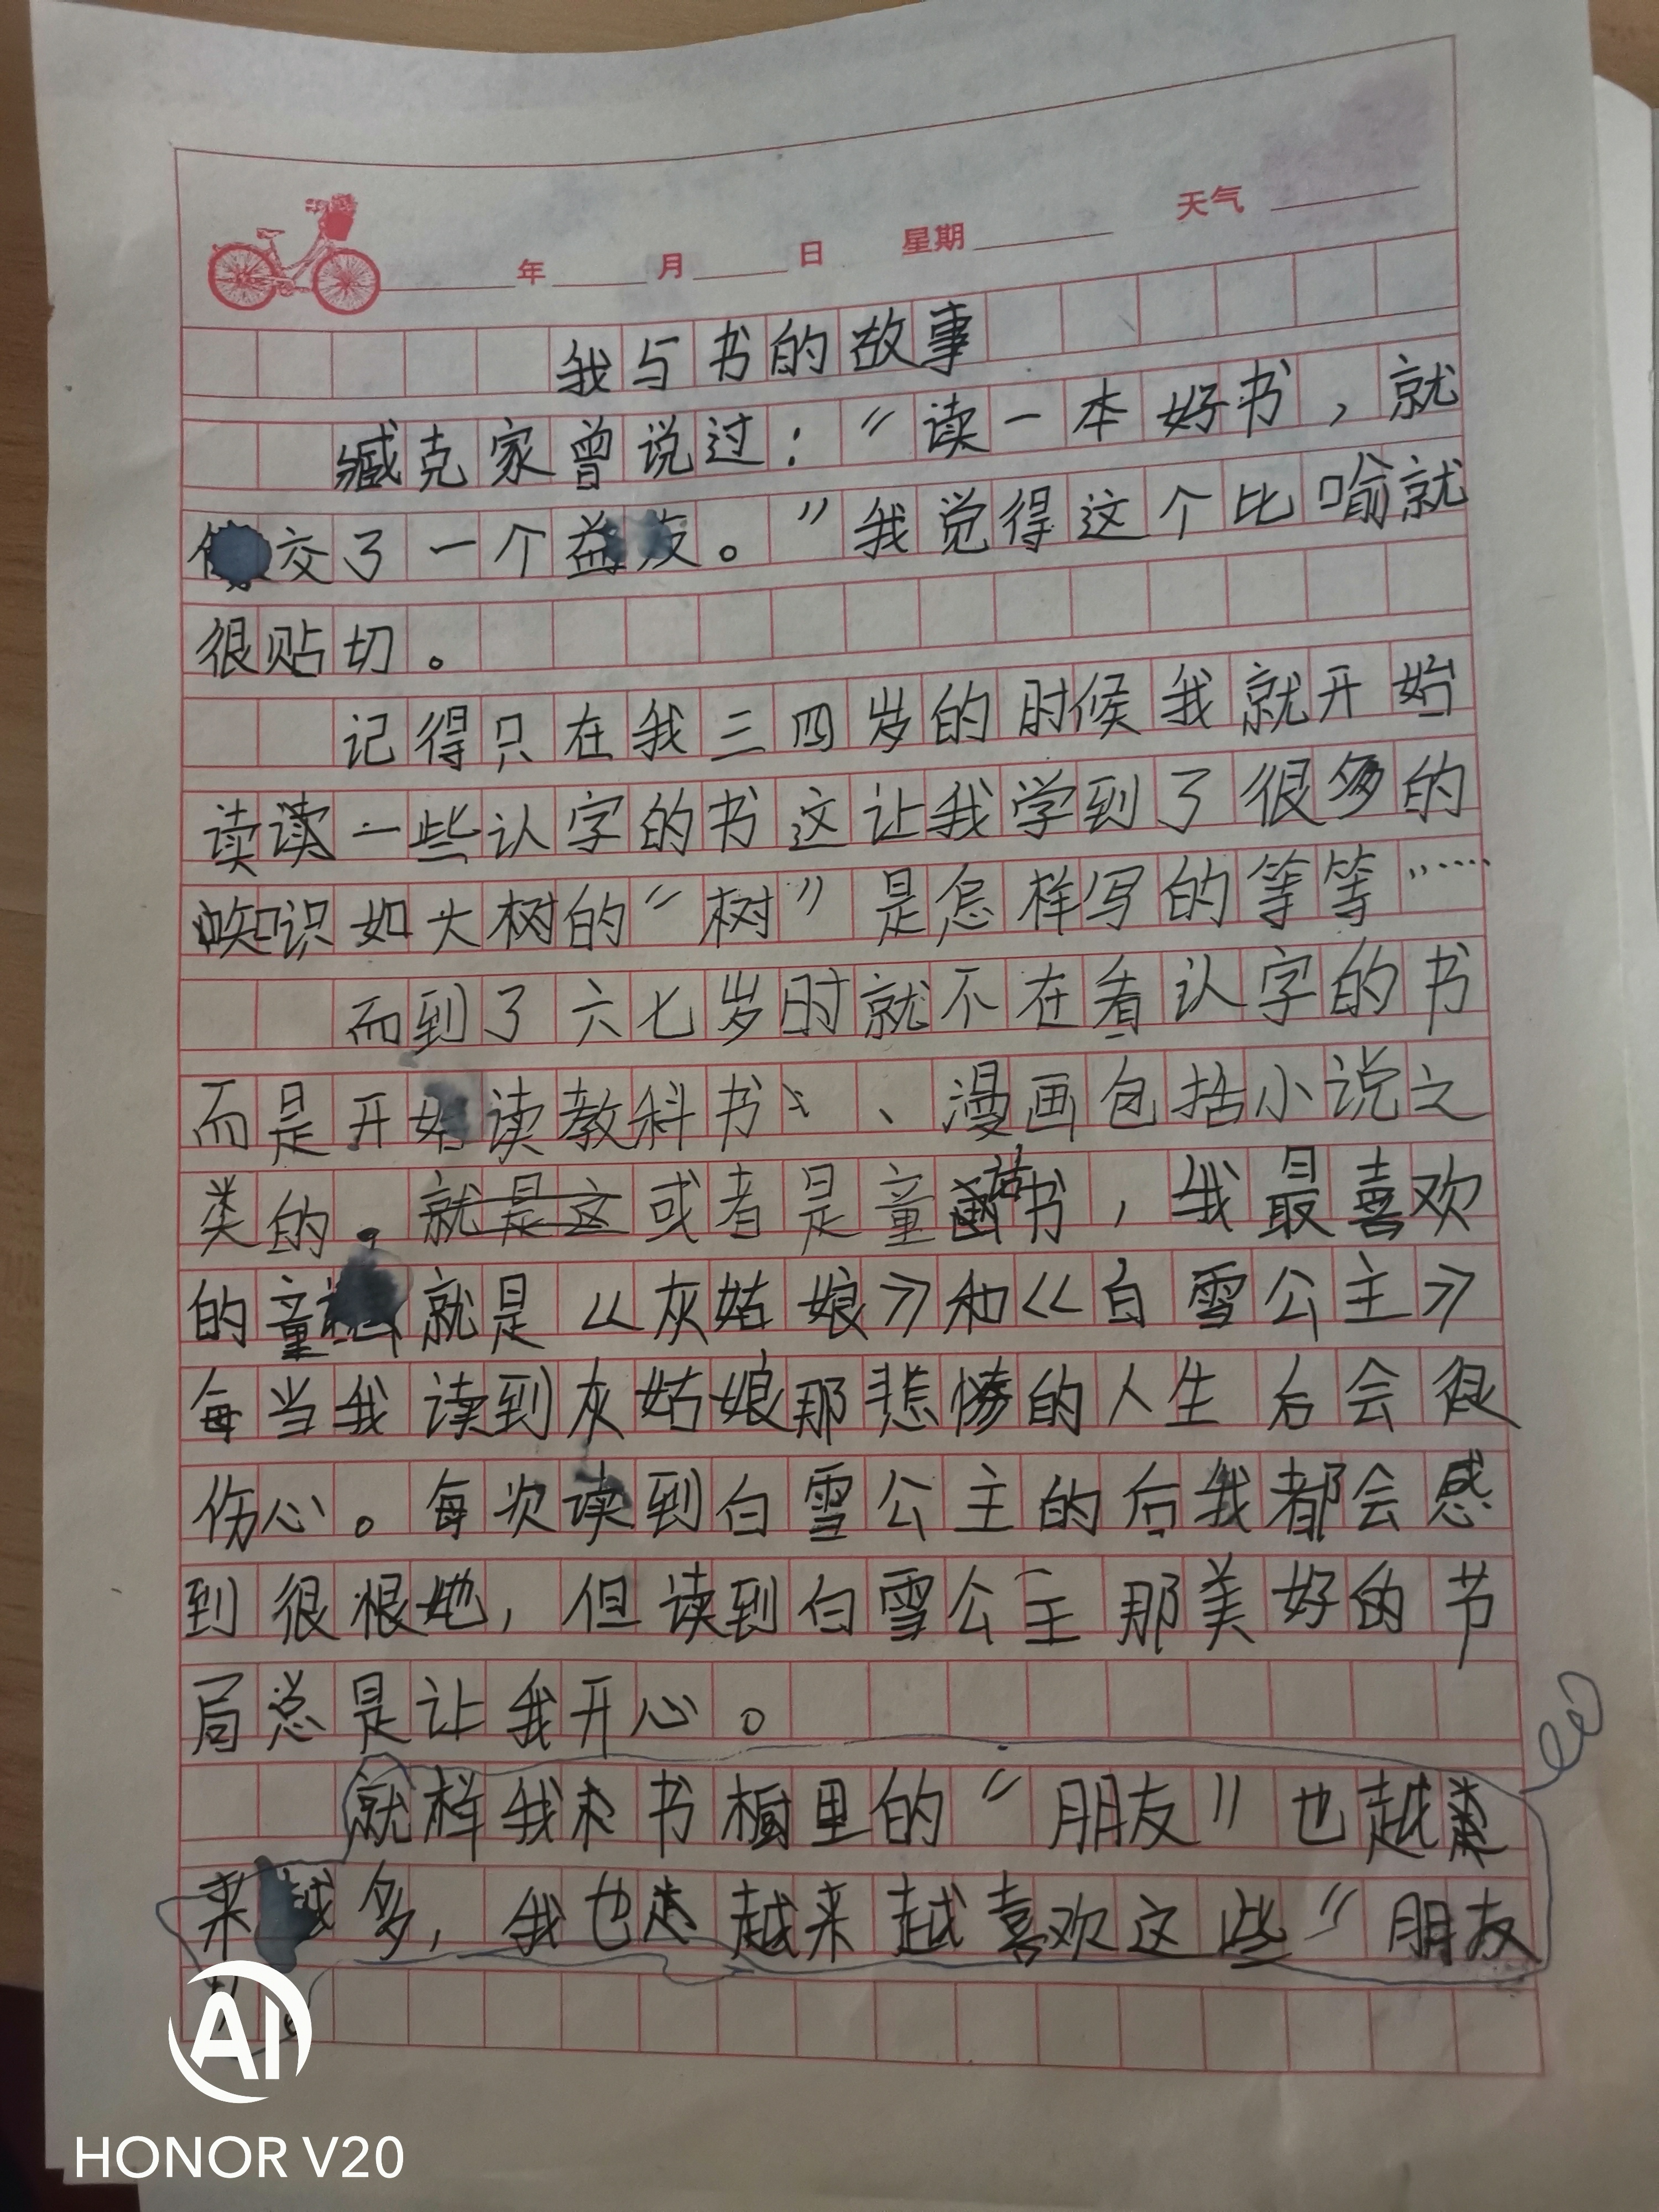 年 月 日 星期 天气
我与书的故事
臧克家曾说过：“读一本好书，就
交了一个益友。”我觉得这个比喻就
很贴切。
记得只在我三四岁的时候我就开始
读读一些认字的书这让我学到了很多的
知识如大树的“树”是怎样写的等等……
而到了六七岁时就不在看认字的书
而是开始读教科书、、漫画包括小说之
类的，就是这或者是童话书，我最喜欢
的童话就是《灰姑娘》和《白雪公主》
每当我读到灰姑娘那悲惨的人生后会很
伤心。每次读到白雪公主的后我都会感
到很恨她，但读到白雪公主那美好的节
局总是让我开心。
就样我书橱里的“朋友”也越
来越多，我也越来越喜欢这些“朋友
”。
AI
HONOR V20